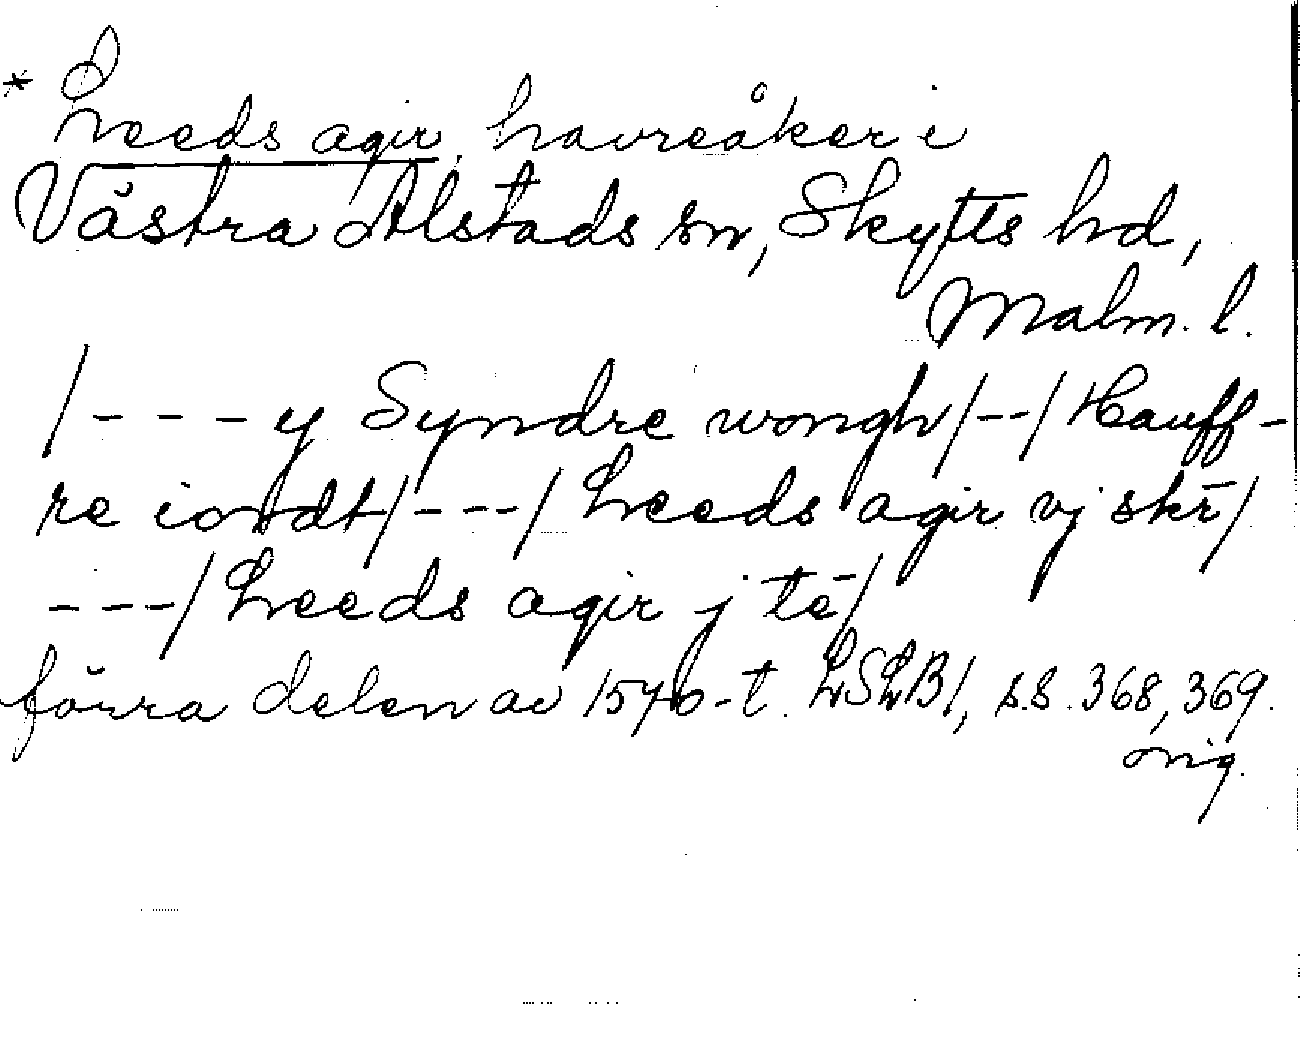 * Leeds agir, havreåker i
Västra Alstads sn, Skytts hd,
Malm. l.
/- - - y Syndre wongh/--/Hauff-
re iordt/---/Leeds agir vj skr̄/
---/Leeds agir j tē/
förra delen av 1570-t. LSLB1, s.s. 368, 369.
orig.